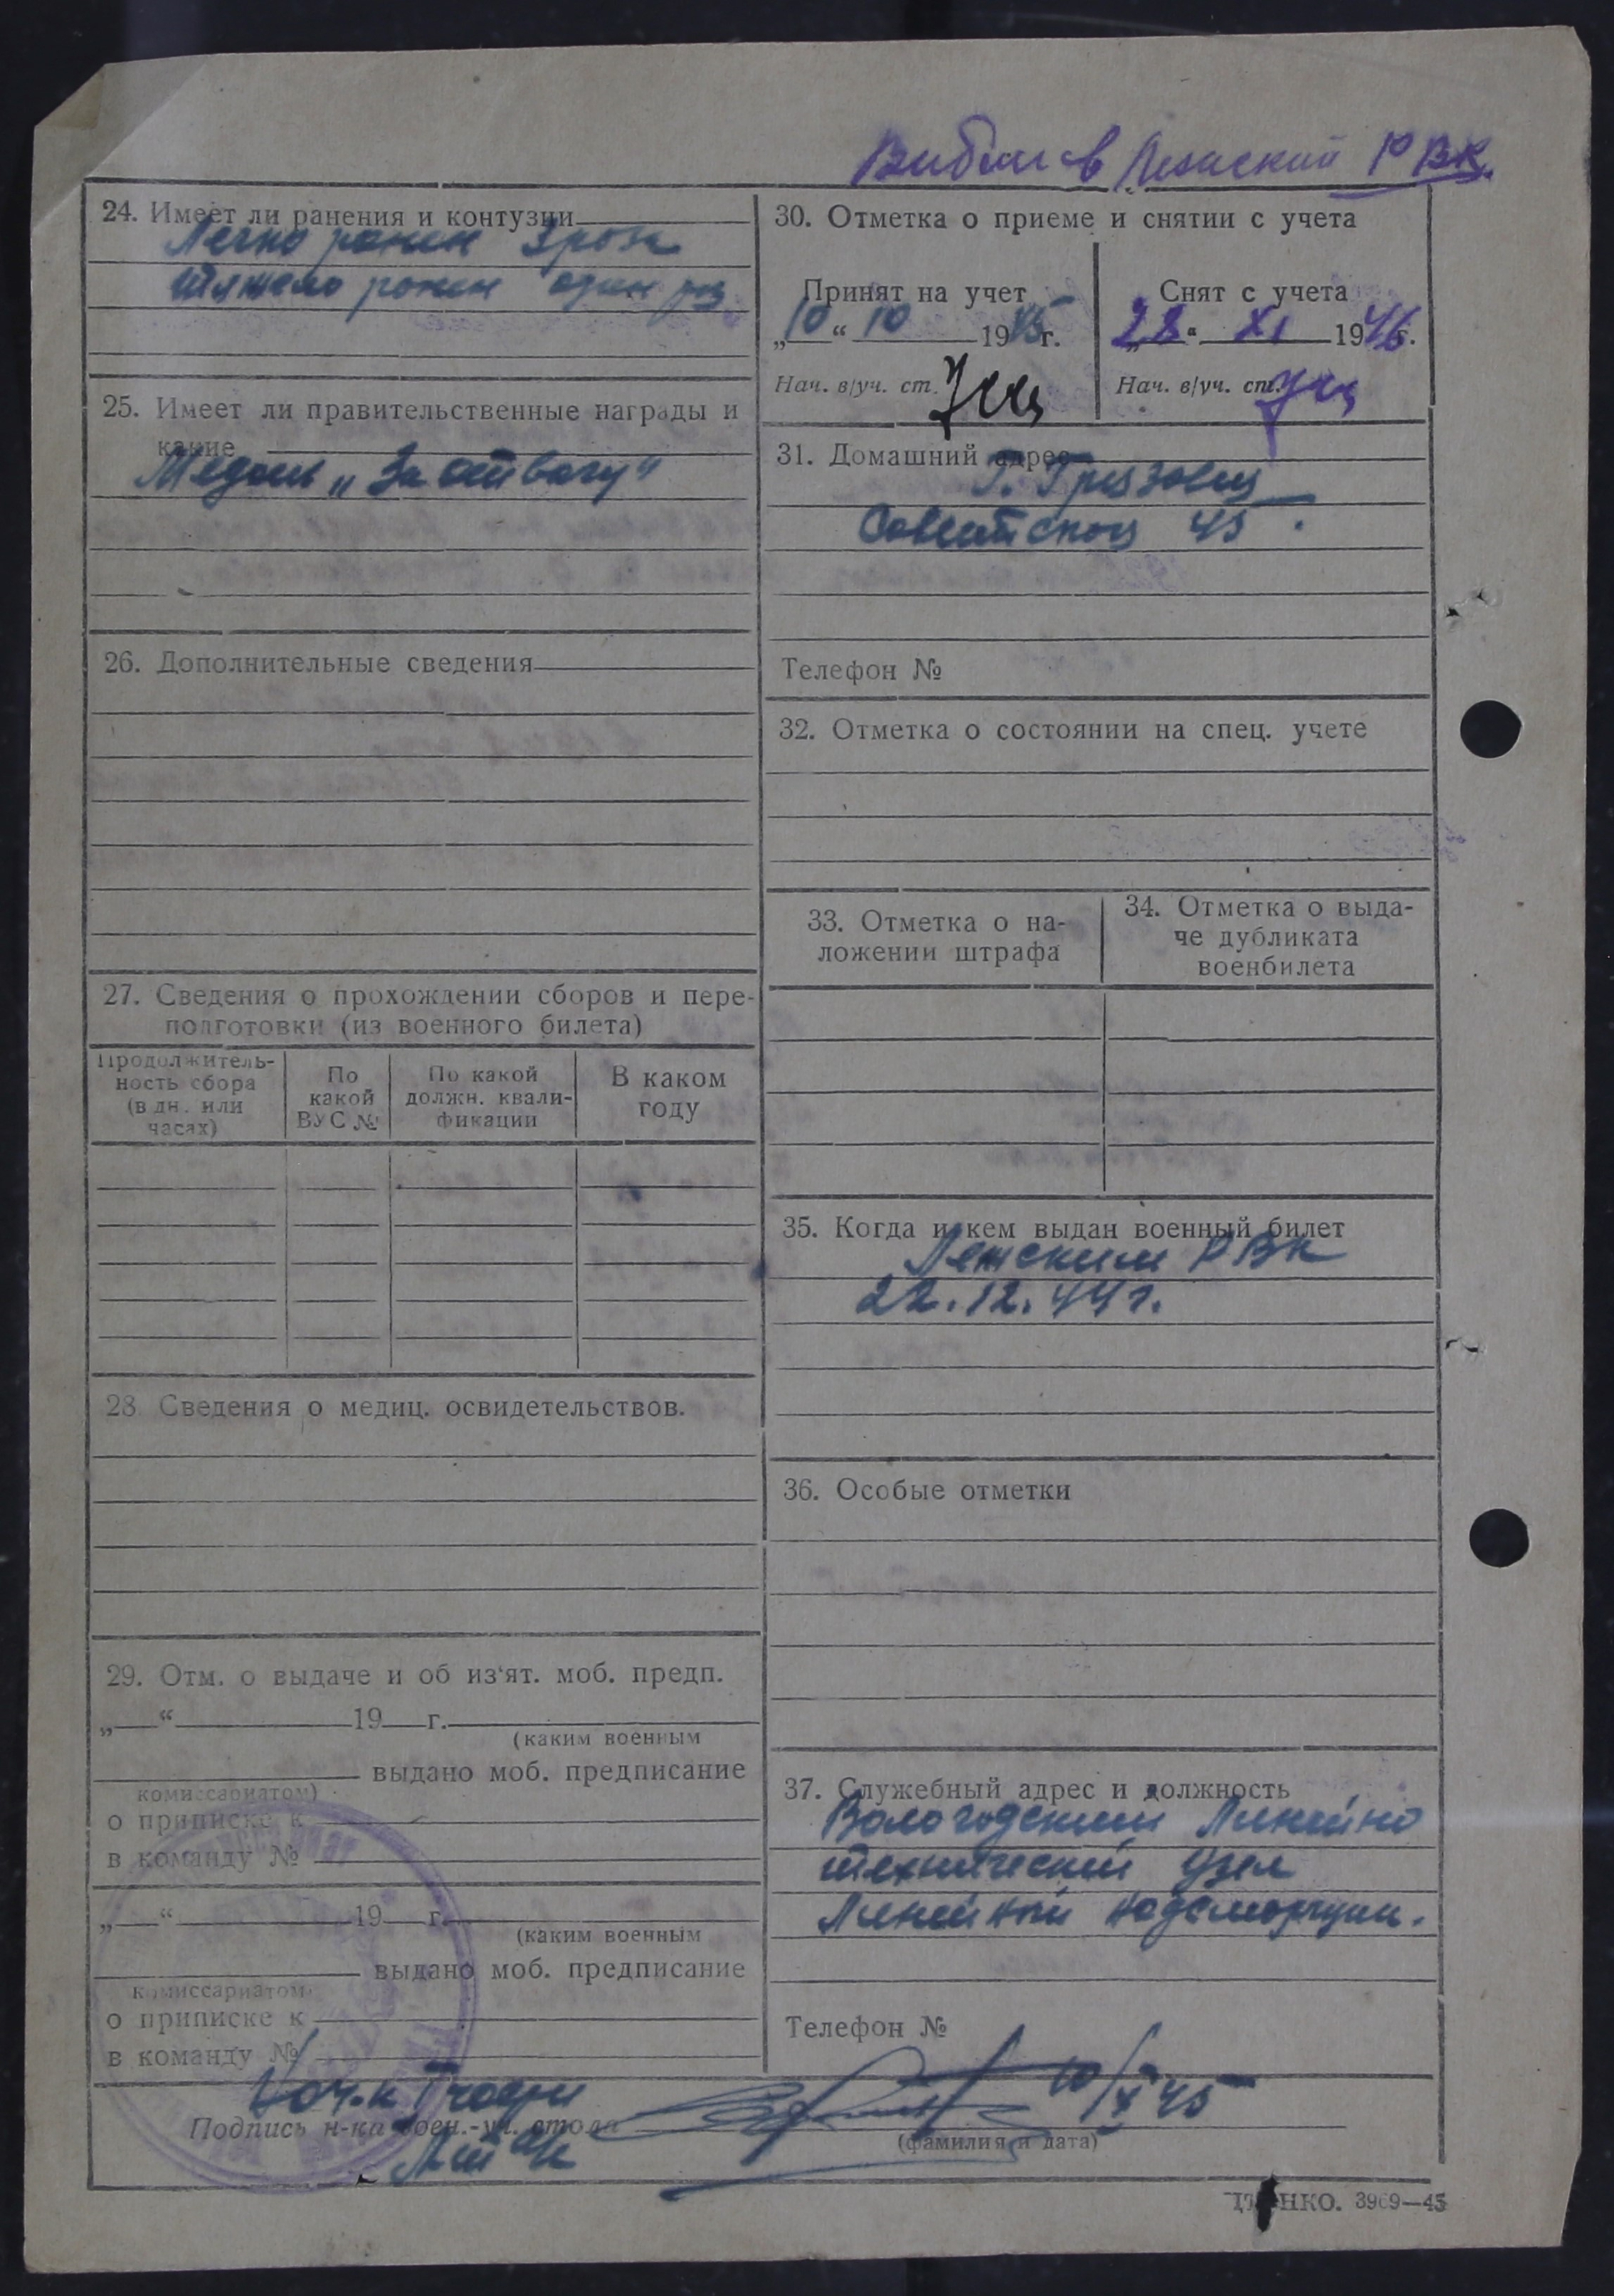 Выбыл в Лежский РВК.
24. Имеет ли ранения и контузии
Легко ранен 3 раза
тяжело ранен один раз
25. Имеет ли правительственные награды и
какие
Медаль „За отвагу"
26. Дополнительные сведения
27. Сведения о прохождении сборов и пере-
подготовки (из военного билета)
Продолжитель-
ность сбора
(в дн. или
часах)
По
какой
ВУС №
По какой
должн. квали-
фикации
В каком
году
28. Сведения о медиц. освидетельствов.
29. Отм. о выдаче и об из'ят. моб. предп.
„ “ 19 г.
(каким военным
выдано моб. предписание
комиссариатом)
о приписке к
в команду №
„ “ 19 г.
(каким военным
выдано моб. предписание
комиссариатом
о приписке к
в команду №
30. Отметка о приеме и снятии с учета
Принят на учет
„10“ 10 1945 г.
Нач. в/уч. ст.
Снят с учета
„28“ XI 1946 г.
Нач. в/уч. ст.
31. Домашний адрес
г. Грязовец
Советская 45.
Телефон №
32. Отметка о состоянии на спец. учете
33. Отметка о на-
ложении штрафа
34. Отметка о выда-
че дубликата
военбилета
35. Когда и кем выдан военный билет
Лежским РВК
22.12.44 г.
36. Особые отметки
37. Служебный адрес и должность
Вологодский Линейно
технический узел
Линейный надсмотрщик.
Телефон №
Подпись н-ка воен.-уч. стола
10/X 45
(фамилия и дата)
НКО. 3969—45